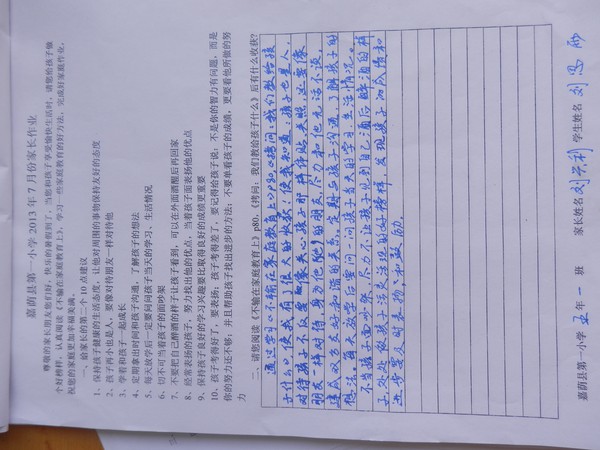 嘉荫县第一小学 2013 年 7 月份家长作业
尊敬的家长朋友您们好，快乐的暑假到了，当您和孩子享受愉快生活时，请您给孩子做
个好榜样，认真阅读《不输在家庭教育上》，学习一些家庭教育的好方法，完成好家庭作业，
祝您的家庭更加幸福美满。
一、给家长的第二个 10 点建议
1、保持孩子健康的生活态度，让他对周围的事物保持友好的态度
2、孩子再小也是人，要像对待朋友一样对待他
3、学着和孩子一起成长
4、定期拿出时间和孩子沟通，了解孩子的想法
5、每天放学后一定要问问孩子当天的学习、生活情况
6、切不可当着孩子的面吵架
7、不要把自己醉酒的样子让孩子看到，可以在外面酒醒后再回家
8、经常表扬孩子，努力找出他的优点，当着孩子面表扬他的优点
9、保持孩子良好的学习兴趣要比取得良好的成绩更重要
10、孩子考得好了，要表扬；孩子考得差了，要记得给孩子说：不是你的智力有问题，而是
你的努力还不够；并且帮助孩子找出进步的方法；不要单看孩子的成绩，更要看他所做的努
力
二、请您阅读《不输在家庭教育上》p80，《拷问：我们教给孩子什么》后有什么收获？
通过学习《不输在家庭教育上》P80《拷问：我们教给孩
子什么》，使我有了很大的收获！使我知道，孩子也是人，
对待孩子不仅要像关心孩子那样体贴关照，还要像
朋友一样对待，身为他的朋友，尽力和他无话不谈，
建成双方友好和谐的关系，定期与孩子沟通，了解孩子的
想法。每天放学后要问一问孩子当天的学习生活情况。
不当孩子面吵架，尽力不让孩子见到自己酒后醉酒的样
子，处处做孩子活灵活现的好榜样，发现孩子的成绩和
进步要及时表扬，和鼓励。
嘉荫县第一小学 五 年 一 班 家长姓名 刘兴利 学生姓名 刘思雨